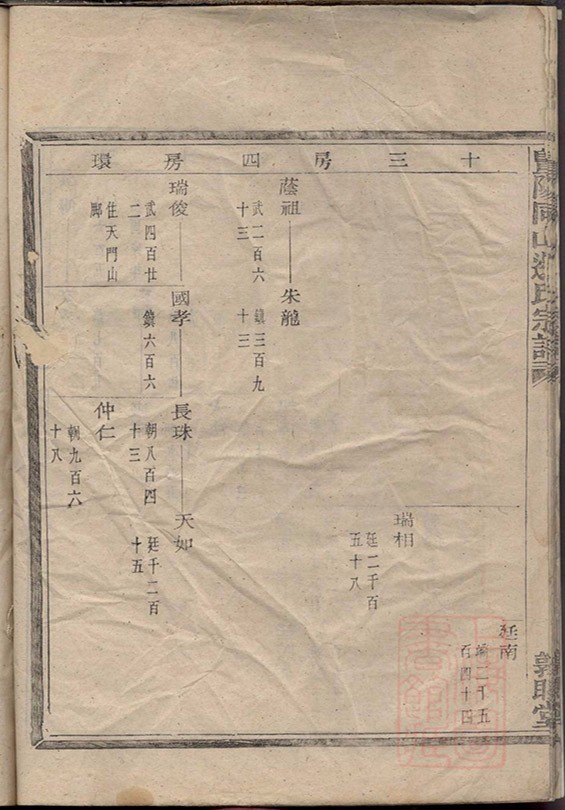 暨陽同山邊氏宗譜
十三房四房環
延南
端二千五
百四十四
瑞相
廷二千百
五十八
蔭祖
武二百六
十三
朱龍
鎮三百九
十三
瑞俊
武四百廿
二
住天門山
國孝
鎮六百六
長珠
朝八百四
十三
天如
廷千二百
十五
仲仁
朝九百六
十八